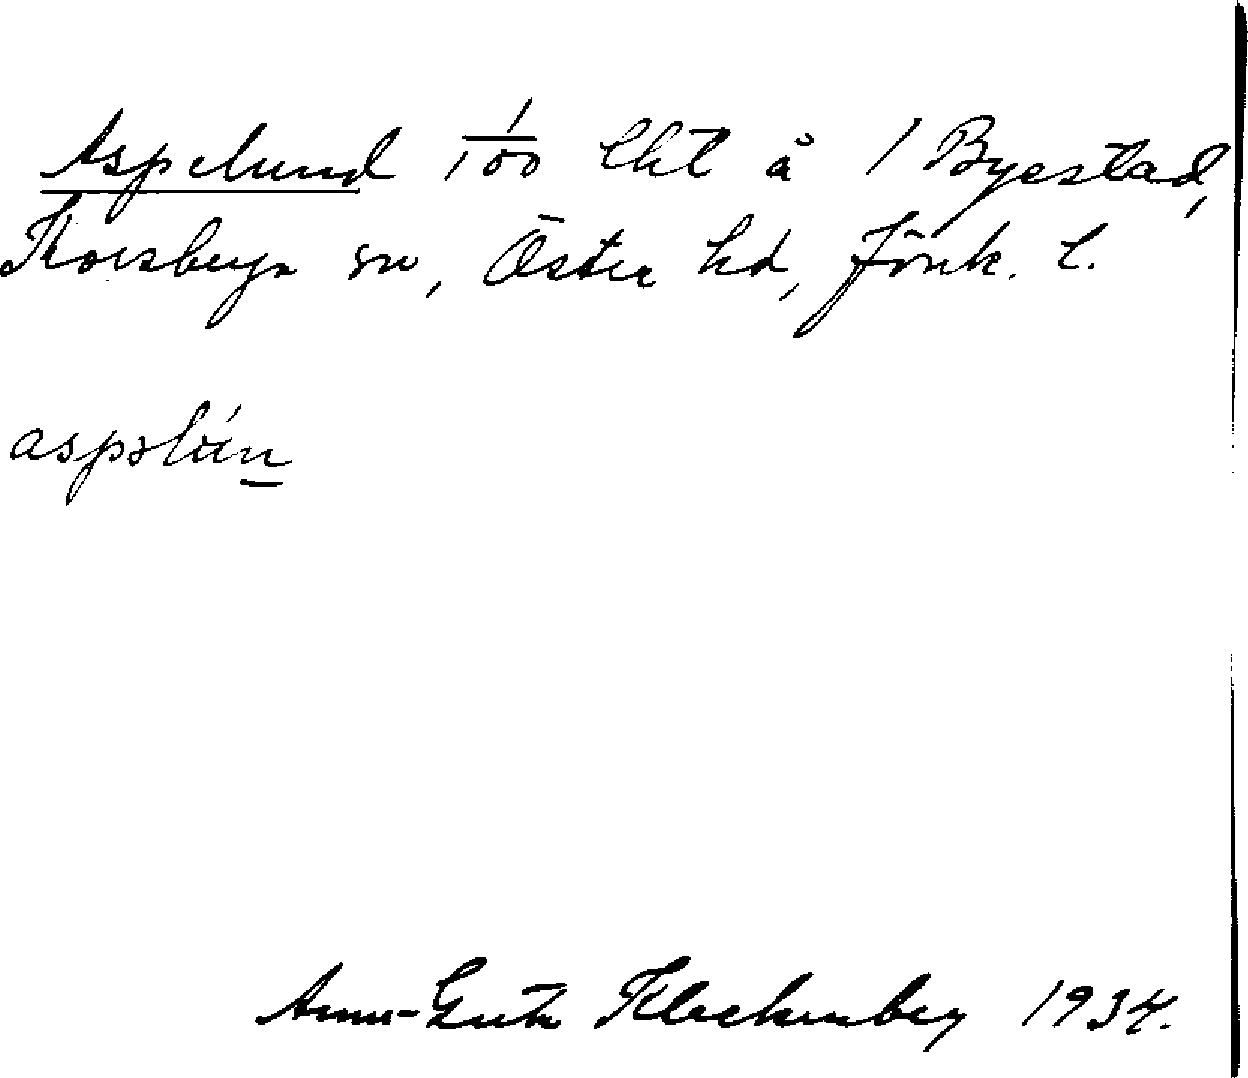 Aspelund 1/100 lht å 1 Byestad,
Korsberga sn, Östra hd, Jönk. l.
aspəlún
Ann-Britt Kleckenberg 1934.